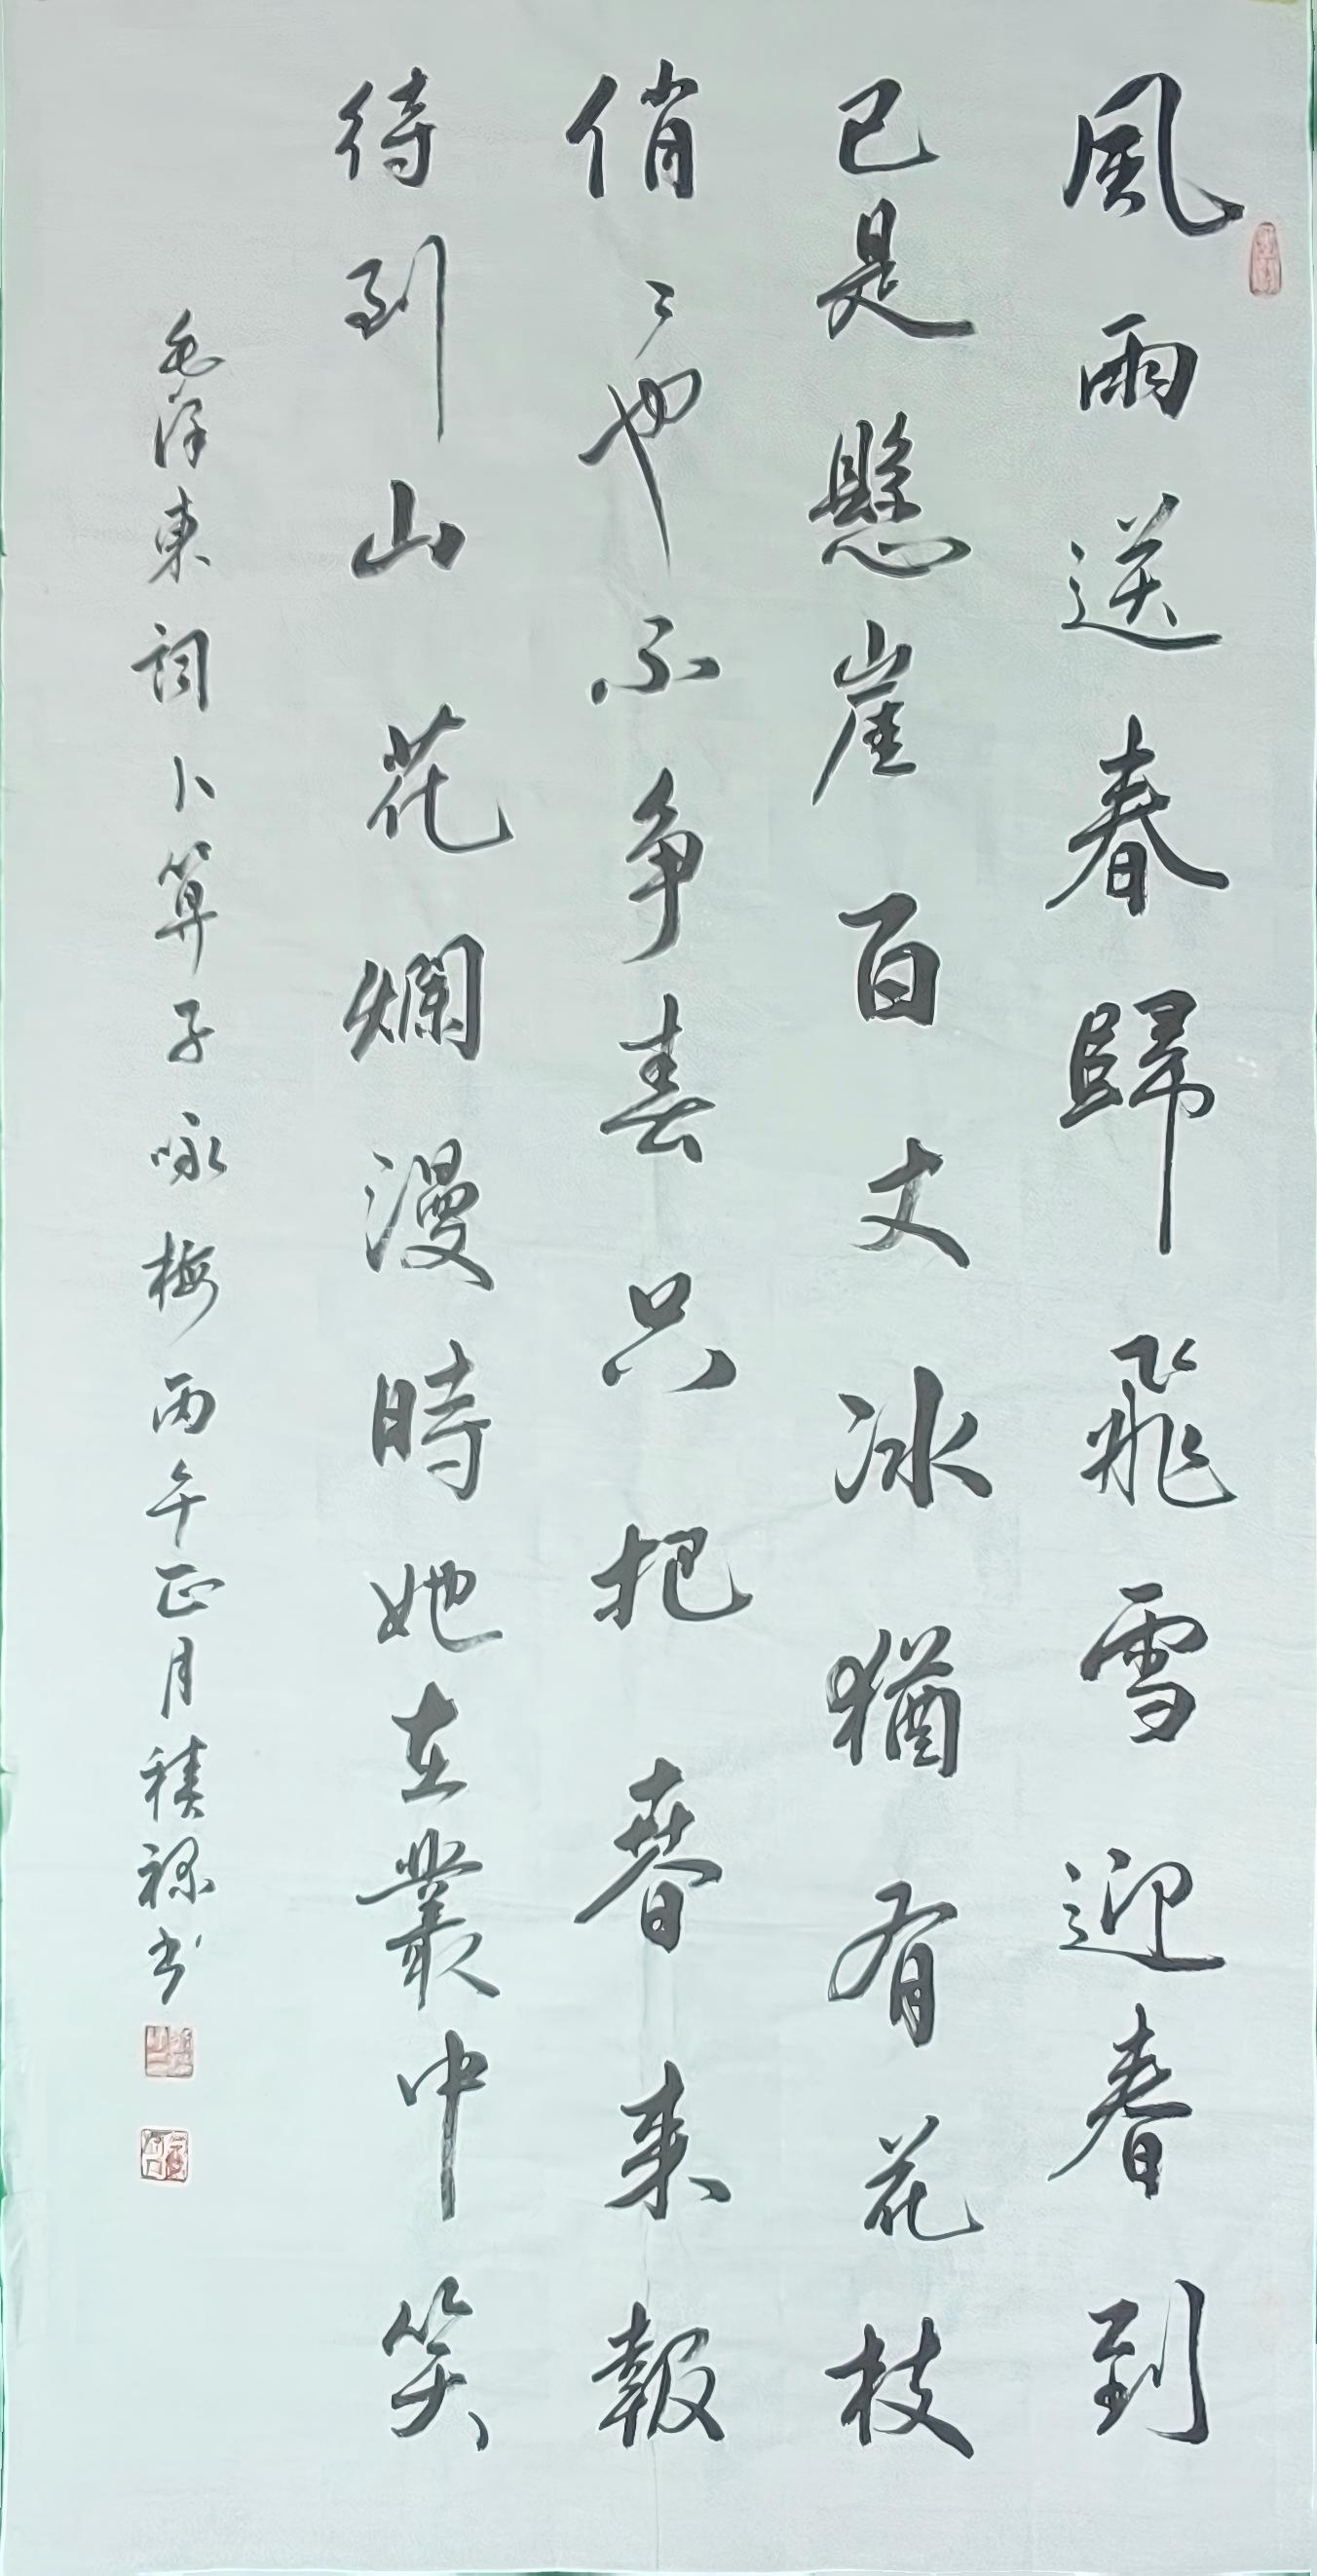 風雨送春歸飛雪迎春到
已是懸崖百丈冰猶有花枝
俏〻也不争春只把春来報
待到山花爛漫時她在叢中笑
毛澤東詞卜算子咏梅丙午正月積禄书